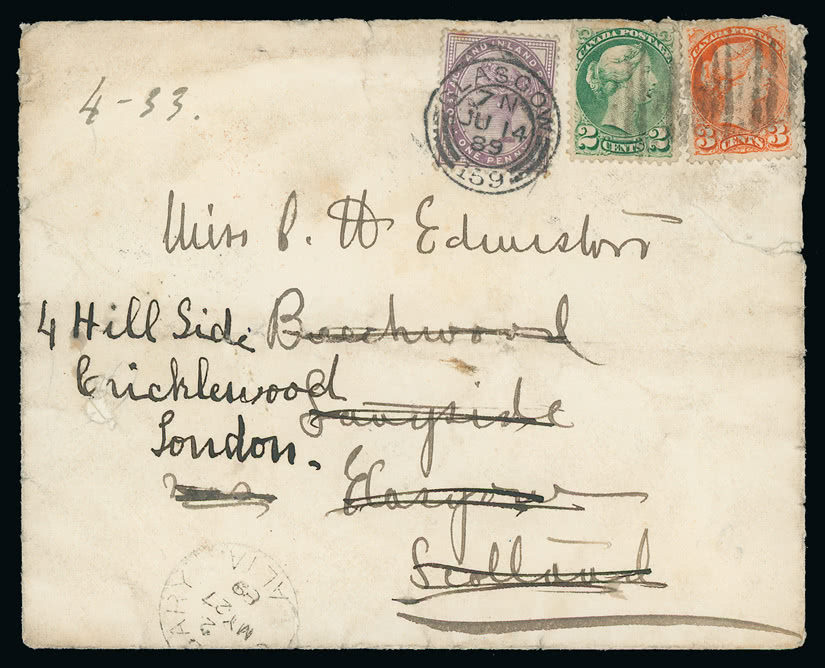 4-33.
AND INLAND
ONE PENNY
GLASGOW
7 N
JU 14
89
159
CANADA POSTAGE
2 CENTS 2
CANADA POSTAGE
3 CENTS 3
Miss P. H Edmiston
4 Hill Side Beechwood
Cricklewood
Langside
London.
Glasgow
Scotland
MY 27
89
ALTA